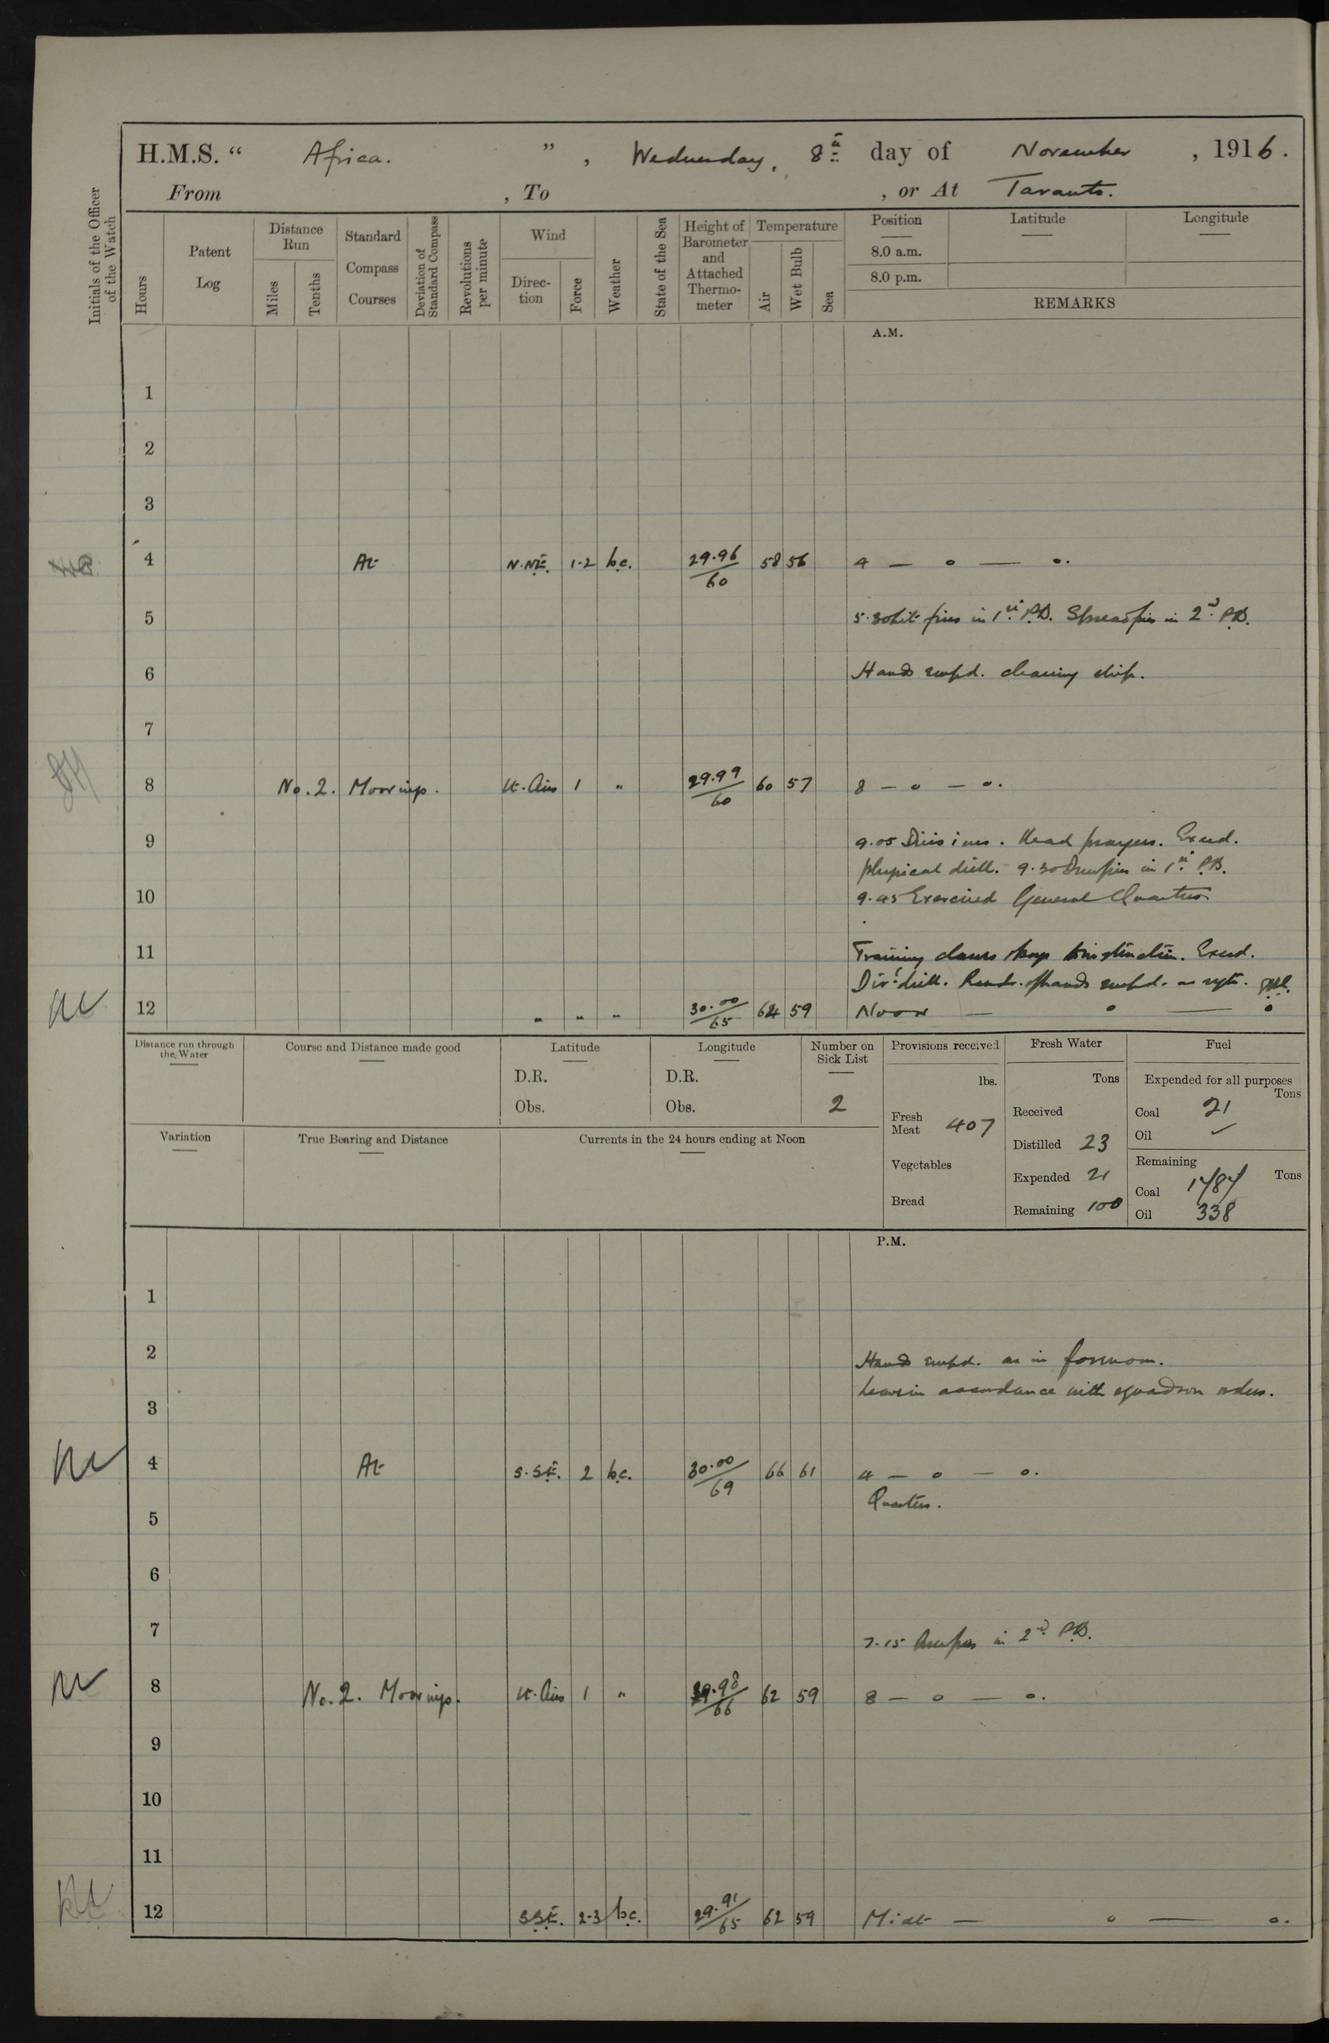 H.M.S. “ Africa. ” , Wednesday, 8th day of November , 1916.
From , To , or At Taranto.
Initials of the Officer of the Watch
Hours
Patent Log
Distance Run
Miles
Tenths
Standard Compass Courses
Deviation of Standard Compass
Revolutions per minute
Wind
Direction
Force
Weather
State of the Sea
Height of Barometer and Attached Thermometer
Temperature
Air
Wet Bulb
Sea
Position Latitude Longitude
8.0 a.m.
8.0 p.m.
REMARKS
A.M.
1
2
3
4 At N.NE. 1-2 b.c. 29.96/60 58 56 4 — o — o.
5 5.30 Lit fires in 1st P.B. Spread fires in 2nd P.B.
6 Hands empd. cleaning ship.
7
8 No. 2. Moorings. Lt. Airs 1 " 29.99/60 60 57 8 — o — o.
9 9.05 Divisions. Read prayers. Exed.
physical drill. 9.30 Drew fires in 1st P.B.
10 9.45 Exercised General Quarters
11 Training classes at instruction. Exed.
Divl drill. Remdr. of hands empd. as reqte.
12 " " " 30.00/65 64 59 Noon — o — o
Distance run through the Water
Course and Distance made good
Latitude
D.R.
Obs.
Longitude
D.R.
Obs.
Number on Sick List
2
Provisions received
lbs.
Fresh Meat 407
Vegetables
Bread
Fresh Water
Tons
Received
Distilled 23
Expended 21
Remaining 100
Fuel
Expended for all purposes
Tons
Coal 21
Oil ✓
Remaining
Tons
Coal 1787
Oil 338
Variation
True Bearing and Distance
Currents in the 24 hours ending at Noon
P.M.
1
2 Hands empd. as in forenoon.
Leave in accordance with squadron orders.
3
4 At S.SE. 2 b.c. 30.00/69 66 61 4 — o — o.
Quarters.
5
6
7 7.15 Drew fires in 2nd P.B.
8 No. 2. Moorings. Lt. Airs 1 " 29.98/66 62 59 8 — o — o.
9
10
11
12 S.S.E. 2-3 b.c. 29.91/65 62 59 Midt — o — o.